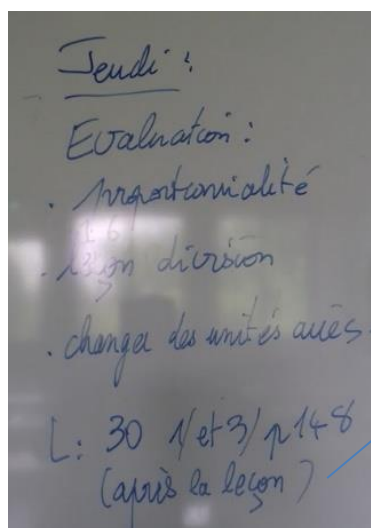 Jeudi :
Evaluation :
. proportionnalité
. division
. changer des unités
L: 30 1/ et 3/ p 148
(après la leçon)